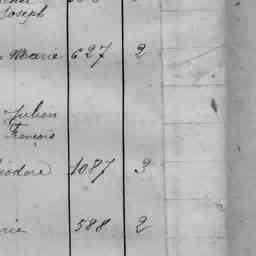 Joseph
Marie 627 2
Julien
François
iodore 1087 3
rie 588 2